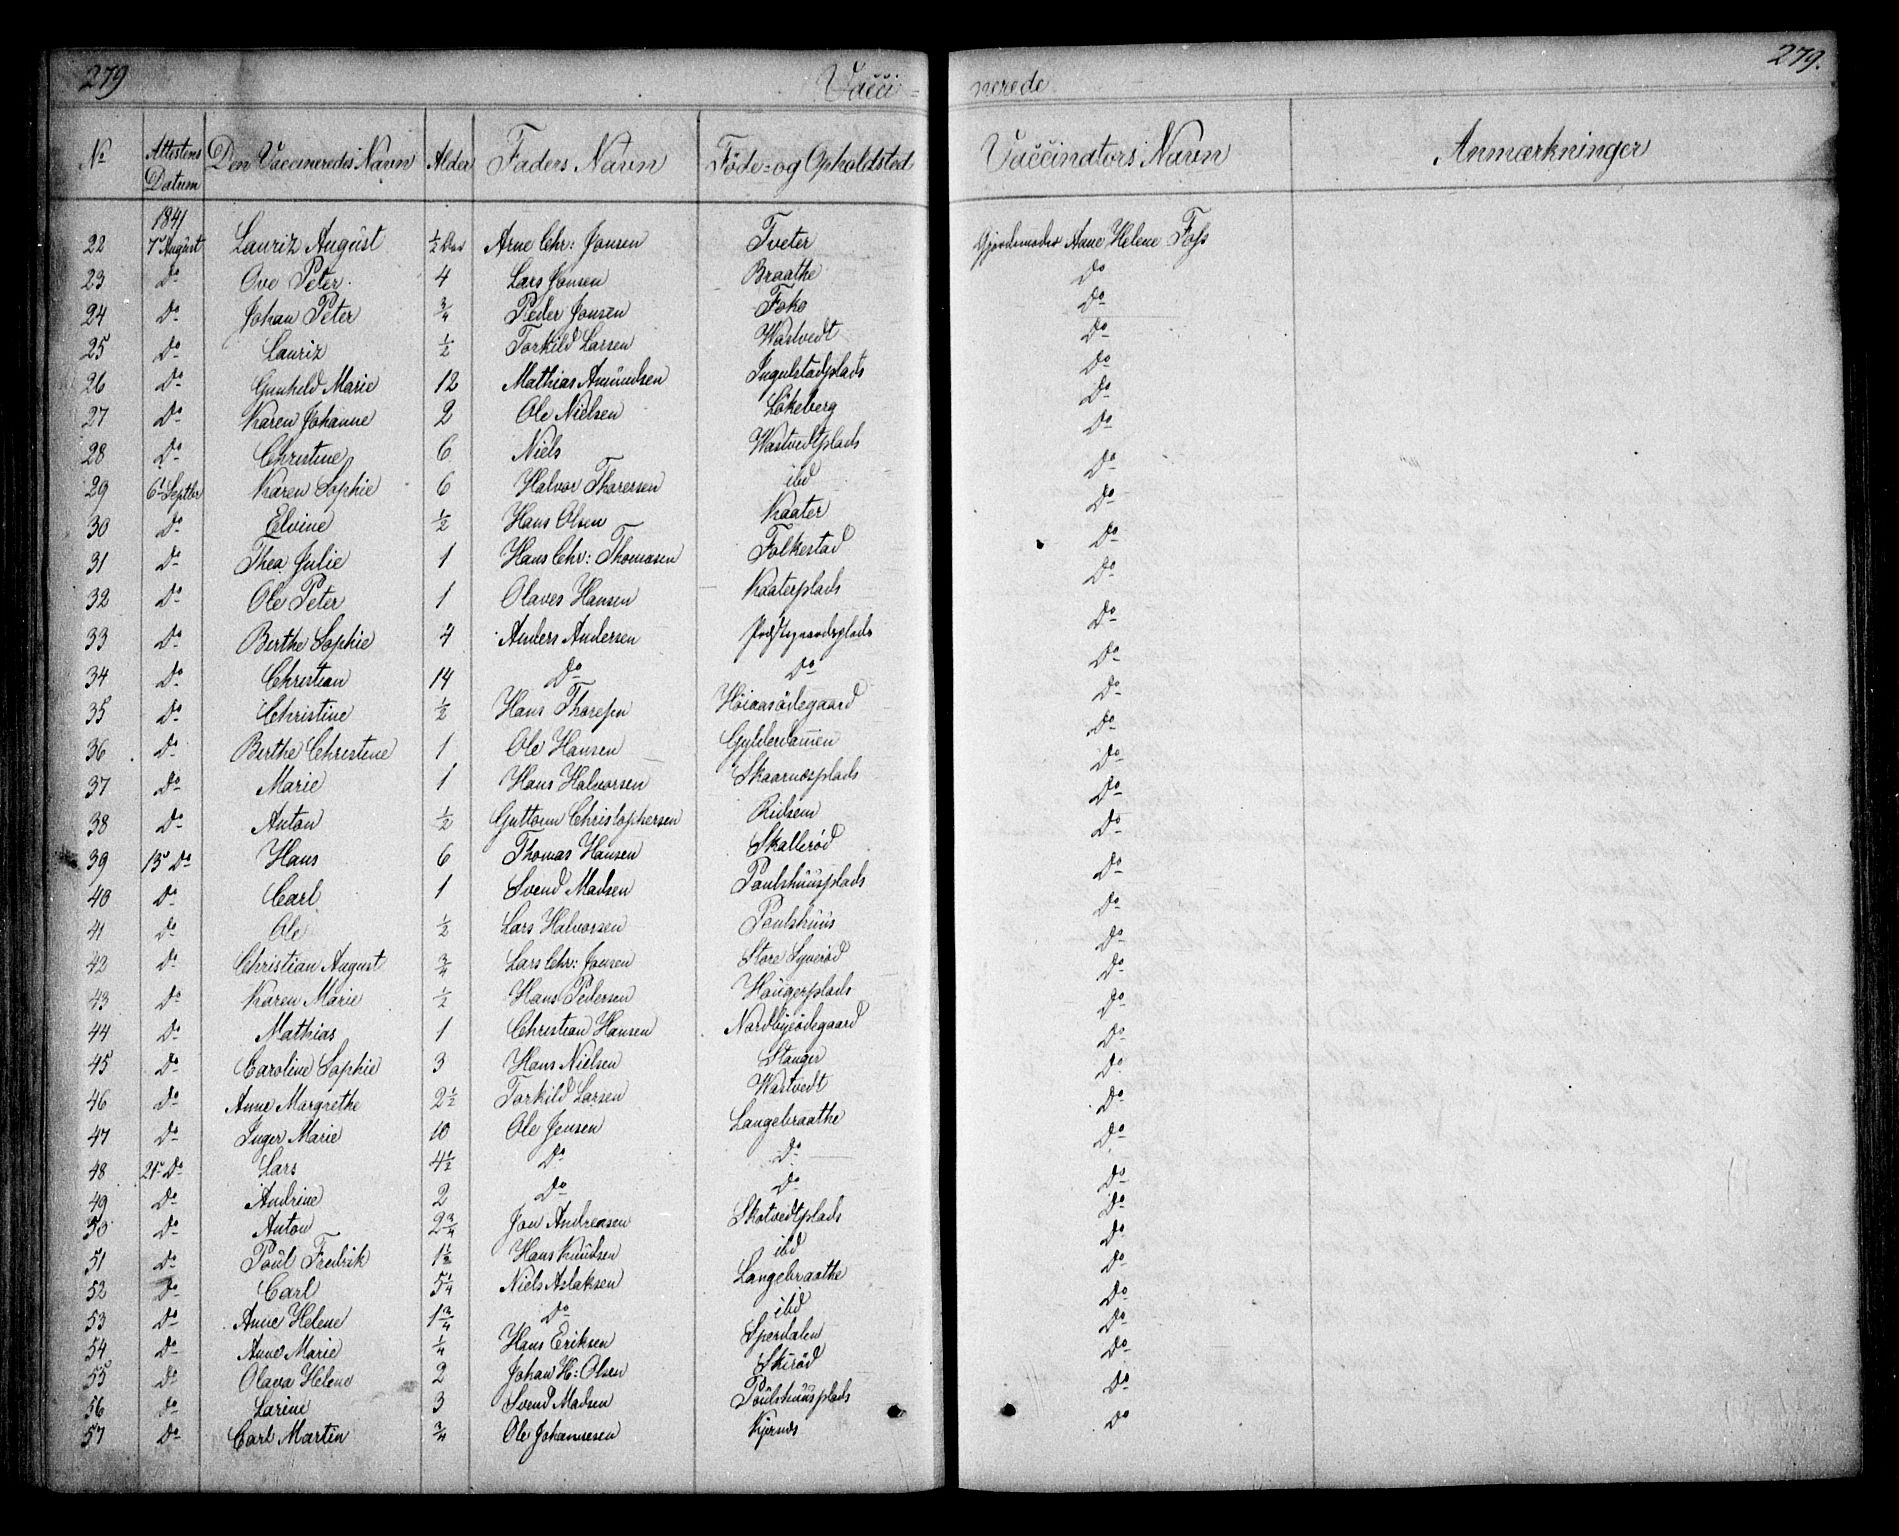 279 Vacci= nerede 279.
No Attestens Datum Den Vaccineredes Navn Alder Faders Navn Föde= og Opholdsted Vaccinators Navn Anmærkninger
1841
22 7d August Lauriz August ½ Aar Arne Chr: Jonsen Tveter Gjordemoder Anne Helene Foss
23 Do Ove Peter 4 Lars Jonsen Braathe Do
24 Do Johan Peter ¾ Peder Jonsen Foko Do
25 Do Lauriz ½ Torkild Larsen Wastvedt Do
26 Do Gunhild Marie 12 Mathias Amundsen Ingulstadplads Do
27 Do Karen Johanne 2 Ole Nielsen Lökeberg Do
28 Do Christine 6 Niels Wastvedtplads Do
29 6d Septbr Karen Sophie 6 Halvor Thoresen ibd Do
30 Do Elvine ½ Hans Olsen Kaater Do
31 Do Thea Julie 1 Hans Chr: Thomasen Folkestad Do
32 Do Ole Peter 1 Olaves Hansen Kaaterplads Do
33 Do Berthe Sophie 4 Anders Andersen Do
34 Do Christian 14 Do Do Do
35 Do Christine ½ Hans Thoresen Höiaasödegaard Do
36 Do Berthe Christine 1 Ole Hansen Gylderdammen Do
37 Do Marie 1 Hans Halvorsen Skaarnesplads Do
38 Do Anton ½ Guttorm Christophersen Do
39 13d Do Hans 6 Thomas Hansen Skalleröd Do
40 Do Carl 1 Svend Madsen Poulshuusplads Do
41 Do Ole ½ Lars Halvorsen Poulshuus Do
42 Do Christian August ¾ Lars Chr: Jonsen Store Syveröd Do
43 Do Karen Marie ½ Hans Pedersen Haugerplads Do
44 Do Mathias 1 Christian Hansen Nordbyeödegaard Do
45 Do Caroline Sophie 3 Hans Nielsen Stanger Do
46 Do Anne Margrethe 2½ Torkild Larsen Wastvedt Do
47 Do Inger Marie 10 Ole Jensen Langebraathe Do
48 21d Do Lars 4½ Do Do Do
49 Do Andrine 2 Do Do Do
50 Do Anton 2¾ Jon Andreasen Skotvedtplads Do
51 Do Poul Fredrik 1½ Hans Knudsen ibd Do
52 Do Carl 5¼ Niels Aslaksen Langebraathe Do
53 Do Anne Helene 1¾ Do ibd Do
54 Do Anne Marie ¼ Hans Eriksen Sperdalen Do
55 Do Olava Helene 2 Johan H: Olsen Skiröd Do
56 Do Larine 3 Svend Madsen Poulshuusplads Do
57 Do Carl Martin ¾ Ole Johannesen Kjernes Do